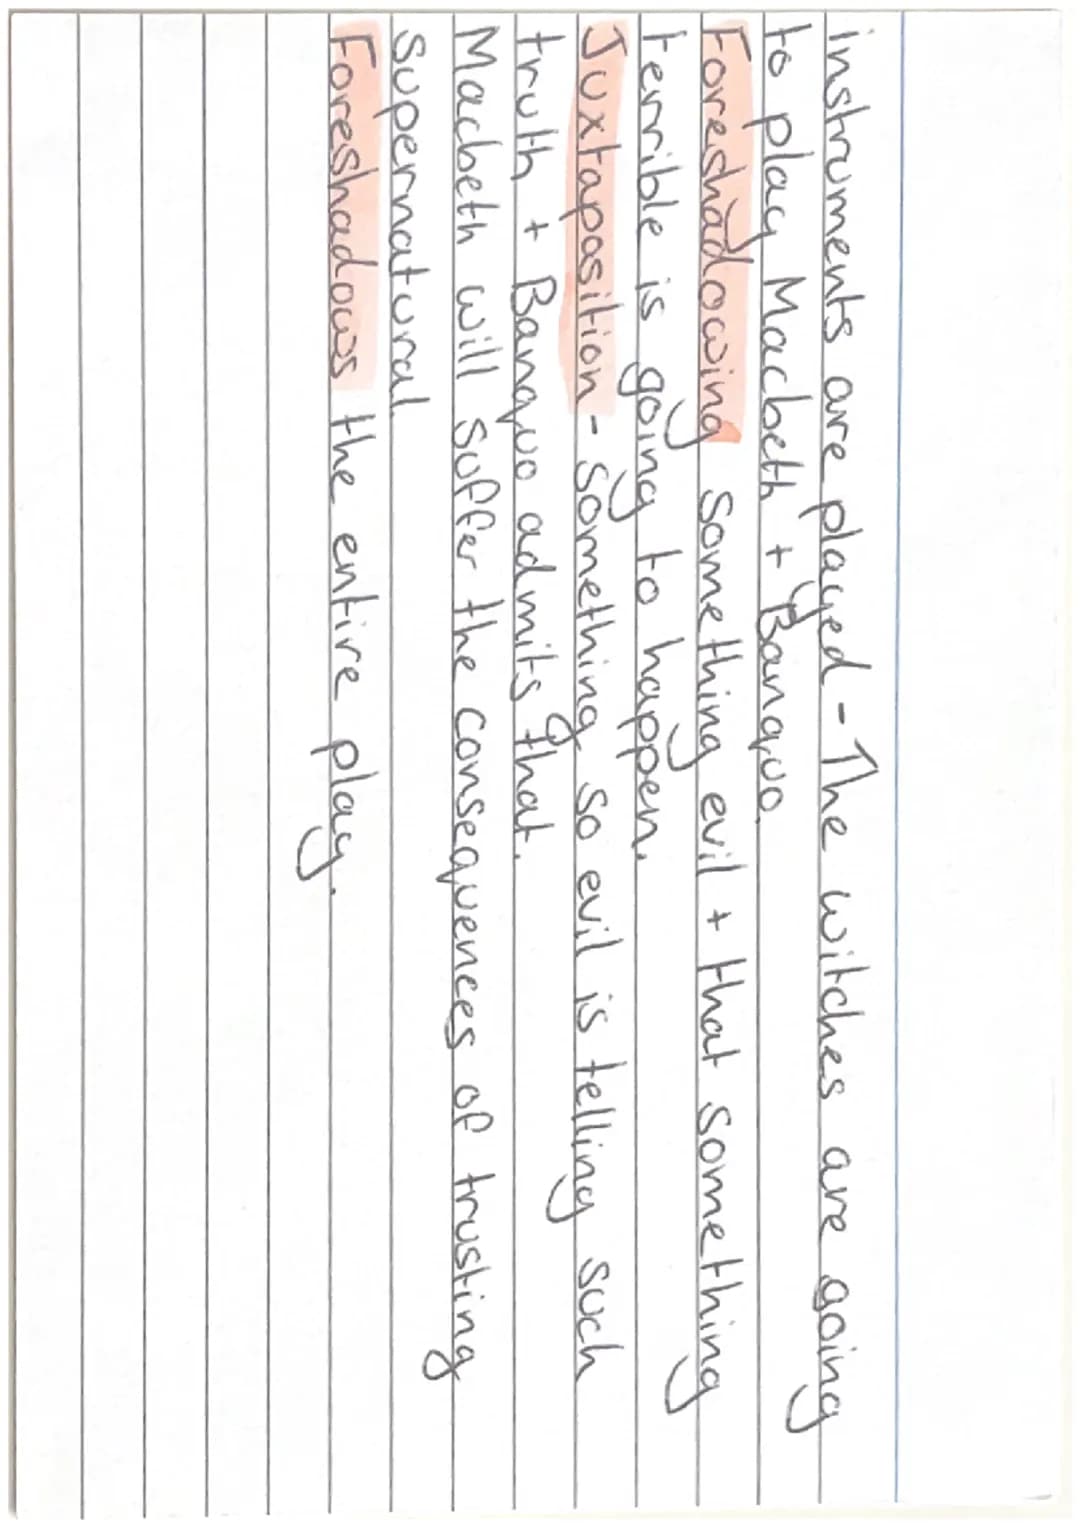 instruments are played - The witches are going
to play Macbeth + Banquo.
Foreshadowing something evil + that something
terrible is going to happen.
Juxtaposition - Something so evil is telling such
truth + Banquo admits that.
Macbeth will suffer the consequences of trusting
supernatural.
Foreshadows the entire play.